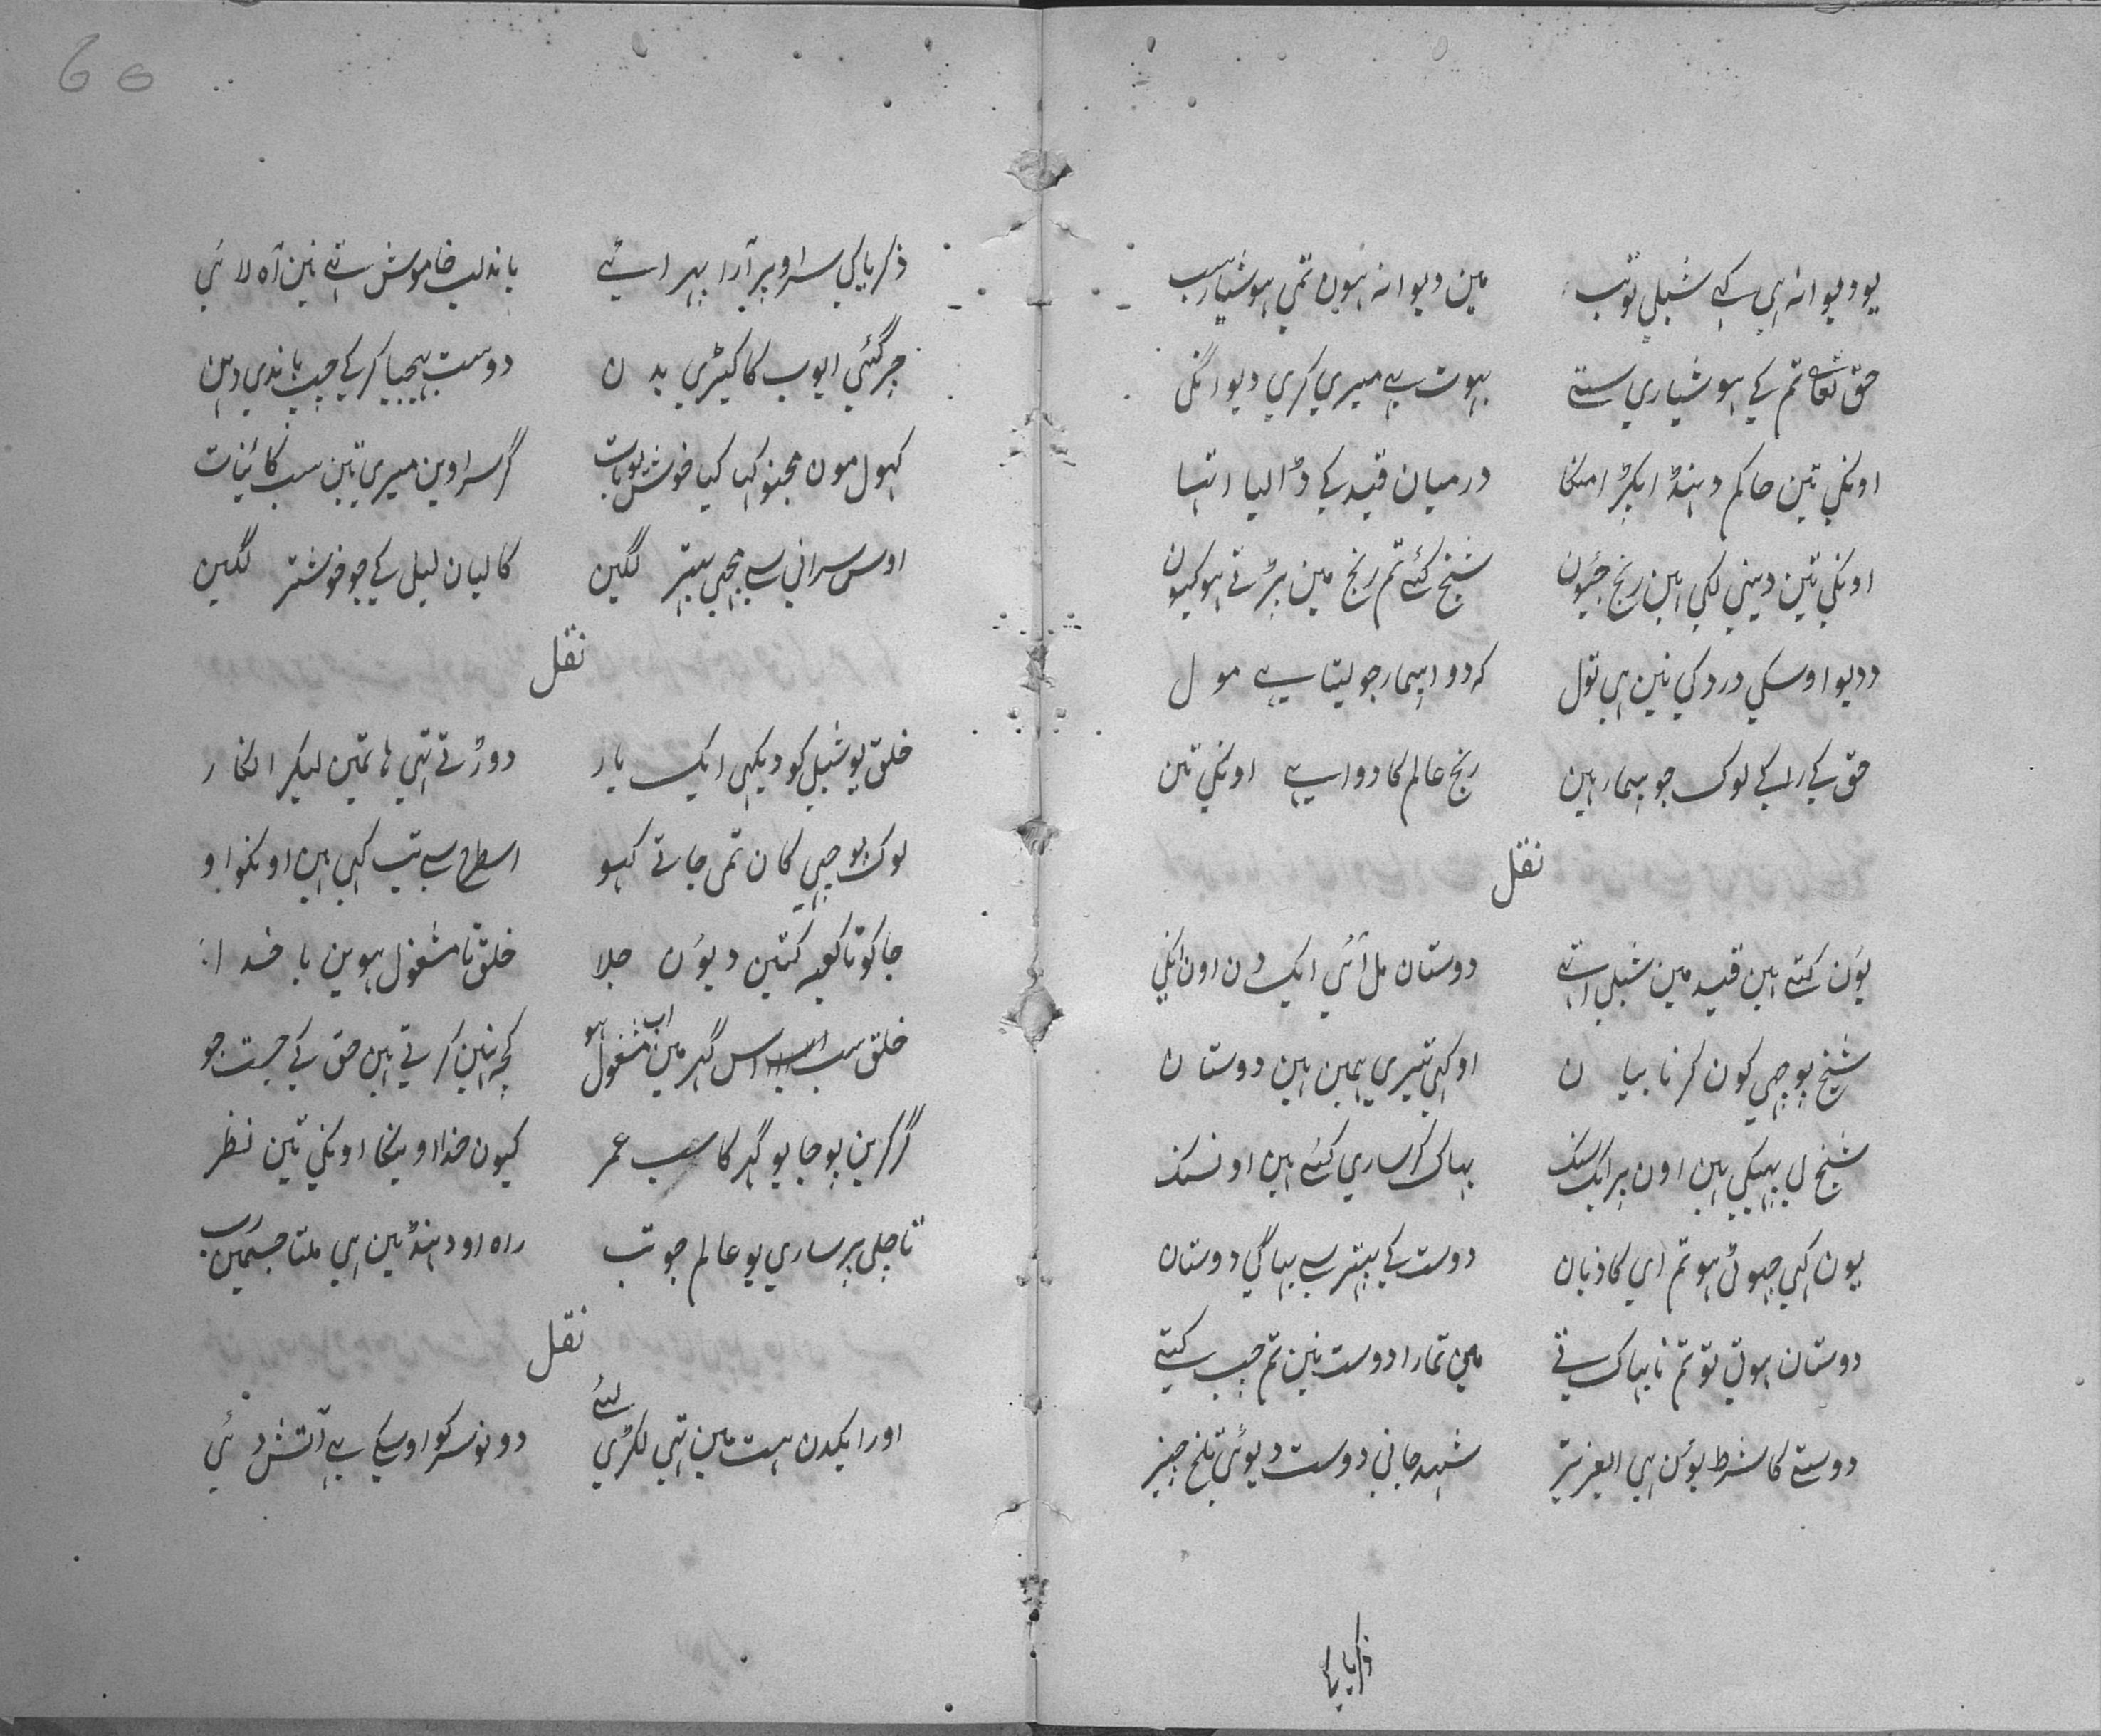 یو دیوانہ ہی کہے شبلی توّب مین دیوانہ ہون تمی ہوشیار سب
حق تعالی تم کے ہوشیاری ستے بہوت ہے میری کری دیوانگی
اونکی تین حاکم دہنڈ ایکڑ امنکا درمیان قید کے ڈالیا اتہا
اونکی تین دینی لکی ہین رنج جیُون شیخ کئے تم رنج مین پڑتے ہو کیون
دیو اوسکی درد کی نین ہی تول کہ دوا بیمار جو لیتا ہے مول
حق کے راہ کے لوک جو بیمار ہین رنج عالم کا دوا ہے اونکی تین
نقل
یوُن کتے ہین قید مین شبلی اتہے دوستان مل آئی ایک دن اون کنی
شیخ پوچہی کون کرنا بیان او کہی تیری ہمین ہین دوستان
شیخ لی پہیکی ہین اون پر ایک سنک بہاک کر ساری کئے ہین اونسنک
یون کہی جہوٹی ہو تم ای کاذبان دوست کے پتہر سے بہاگی دوستان
دوستان ہوتی تو تم نا بہاک تے مین تمارا دوست نین تم جب کہتے
دوستے کا شرط یوُن ہی العزیز شہد جانی دوست دیوئی تلخ چیز
ذکریا کے
ذکریا کی سر اوپر آرا پہرائے باند لب خاموش اتہے نین آہ لائی
چر گئی ایوب کا کیڑی بدن دوست بہیجیا کر کے چپ باندی دہن
کہول مون مجنو کہا کیا خوش یو بات گر سراوین میری تین سب کائینات
اوس سرانی سے مجہی بہتر لگین کالیان لیلی کے جو خوشتر لگین
نقل
خلق یو شبلی کو دیکہی ایک بار دوڑتے تہی ہاتمین لیکر انکار
لوک پوچہی کان تمی جاتے کہو اسطرح سے تب کہی ہین اونکو او
جا کو تا کعبہ کتین دیوُن جلا خلق تا مشغول ہوین با خدا
خلق سب اس گہر مین اب مشغول ہو کچہ نین کرتے ہین حق کے جست جو
گر کرین پوجا یو گہر کا سب عمر کیون خدا اوینکا اونکی تین نظر
تا چلی پر ساری یو عالم جو تب راہ او دہنڈین ہی ملتا جسمین رب
نقل
اور ایکدن ہت مین تہی لکڑی لئے دونو سر کو اوسکی ہے آتش دئی